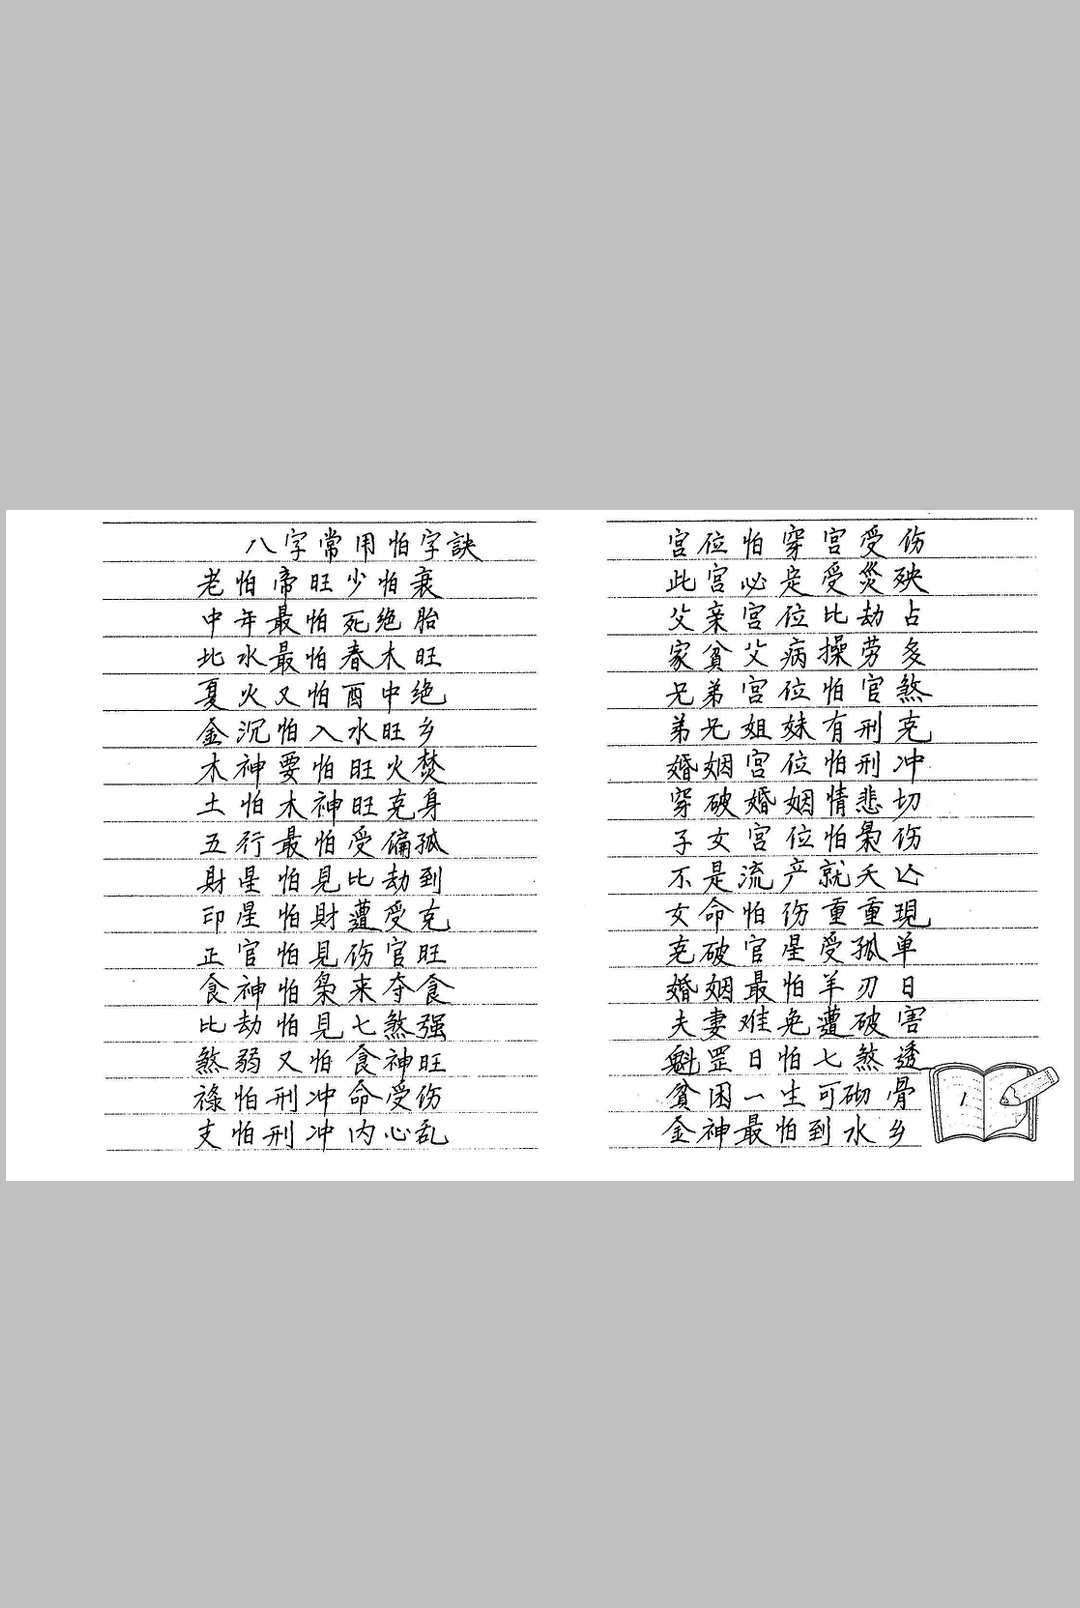 八字常用怕字訣
老怕帝旺少怕衰
中年最怕死绝胎
北水最怕春木旺
夏火又怕酉中绝
金沉怕入水旺乡
木神要怕旺火焚
土怕木神旺克身
五行最怕受偏孤
財星怕見比劫到
印星怕財遭受克
正官怕見伤官旺
食神怕枭来夺食
比劫怕見七煞强
煞弱又怕食神旺
祿怕刑冲命受伤
支怕刑冲内心乱
宫位怕穿宫受伤
此宫必定受災殃
父亲宫位比劫占
家貧父病操劳多
兄弟宫位怕官煞
弟兄姐妹有刑克
婚姻宫位怕刑冲
穿破婚姻情悲切
子女宫位怕枭伤
不是流产就夭亡
女命怕伤重重現
克破官星受孤单
婚姻最怕羊刃日
夫妻难免遭破害
魁罡日怕七煞透
貧困一生可砌骨
金神最怕到水乡
1